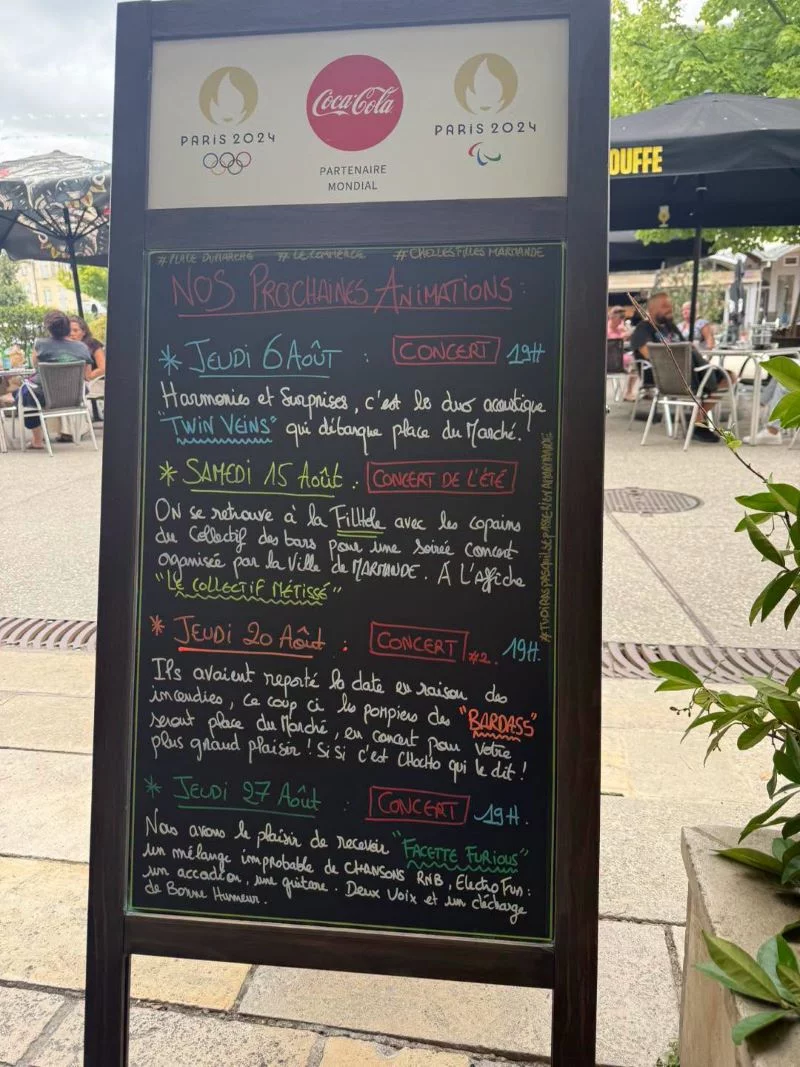 PARIS 2024
Coca-Cola
PARTENAIRE
MONDIAL
PARIS 2024
OUFFE
#PLACE DUMARCHE #LECOMMERCE #CHEZLESFILLES MARMANDE
NOS PROCHAINES ANIMATIONS:
* JEUDI 6 AOÛT : CONCERT 19H
Harmonies et Surprises, c'est le duo acoustique
"TWIN VEINS" qui débarque place du Marché.
* SAMEDI 15 Août . CONCERT DE L'ÉTÉ
ON se retrouve à la Filhole avec les copains
du Collectif des bars pour une soirée concert
organisée par la Ville de MARMANDE. A L'Affiche
"LE COLLECTIF MÉTISSÉ"
* JEUDI 20 Août : CONCERT #2. 19H.
Ils avaient reporté la date en raison des
incendies, ce coup ci les pompiers des "BARDASS"
seront place du Marché, en concert pour votre
plus grand plaisir ! Si Si c'est CHOCHO qui le dit !
* JEUDI 27 Août : CONCERT 19H.
Nous avons le plaisir de recevoir "FACETTE FURIOUS"
un mélange improbable de CHANSONS RNB, Electro Fun :
un accadéon, une guitare. Deux Voix et un décharge
de Bonne Humeur.